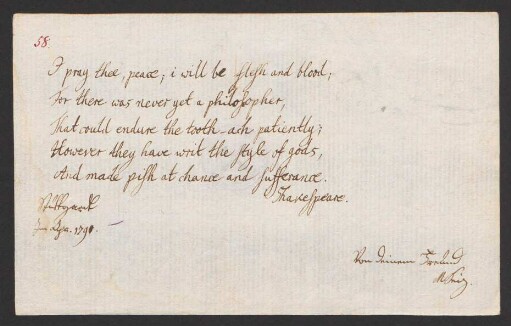 58.
I pray thee, peace; i will be flesh and blood;
For there was never yet a philosopher,
That could endure the tooth-ach patiently;
However they have writ the style of gods,
And made pish at chance and sufferance.
Shakespeare.
Stuttgardt
1790.
Von deinem Freund